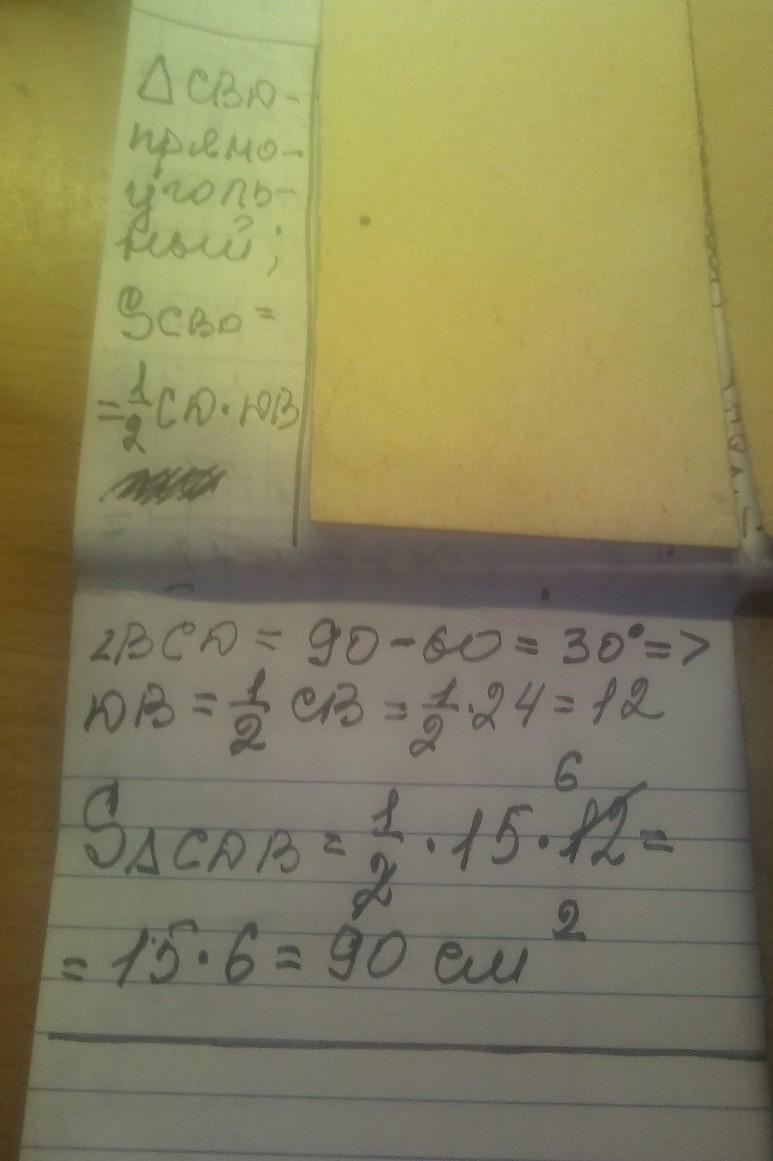 △CBD-
прямо-
уголь-
ный;
SCBD =
= 1/2 CD · DB
∠BCD = 90 - 60 = 30° =>
DB = 1/2 CB = 1/2 · 24 = 12
6
S△CDB = 1/2 · 15 · 12 =
= 15 · 6 = 90 см²